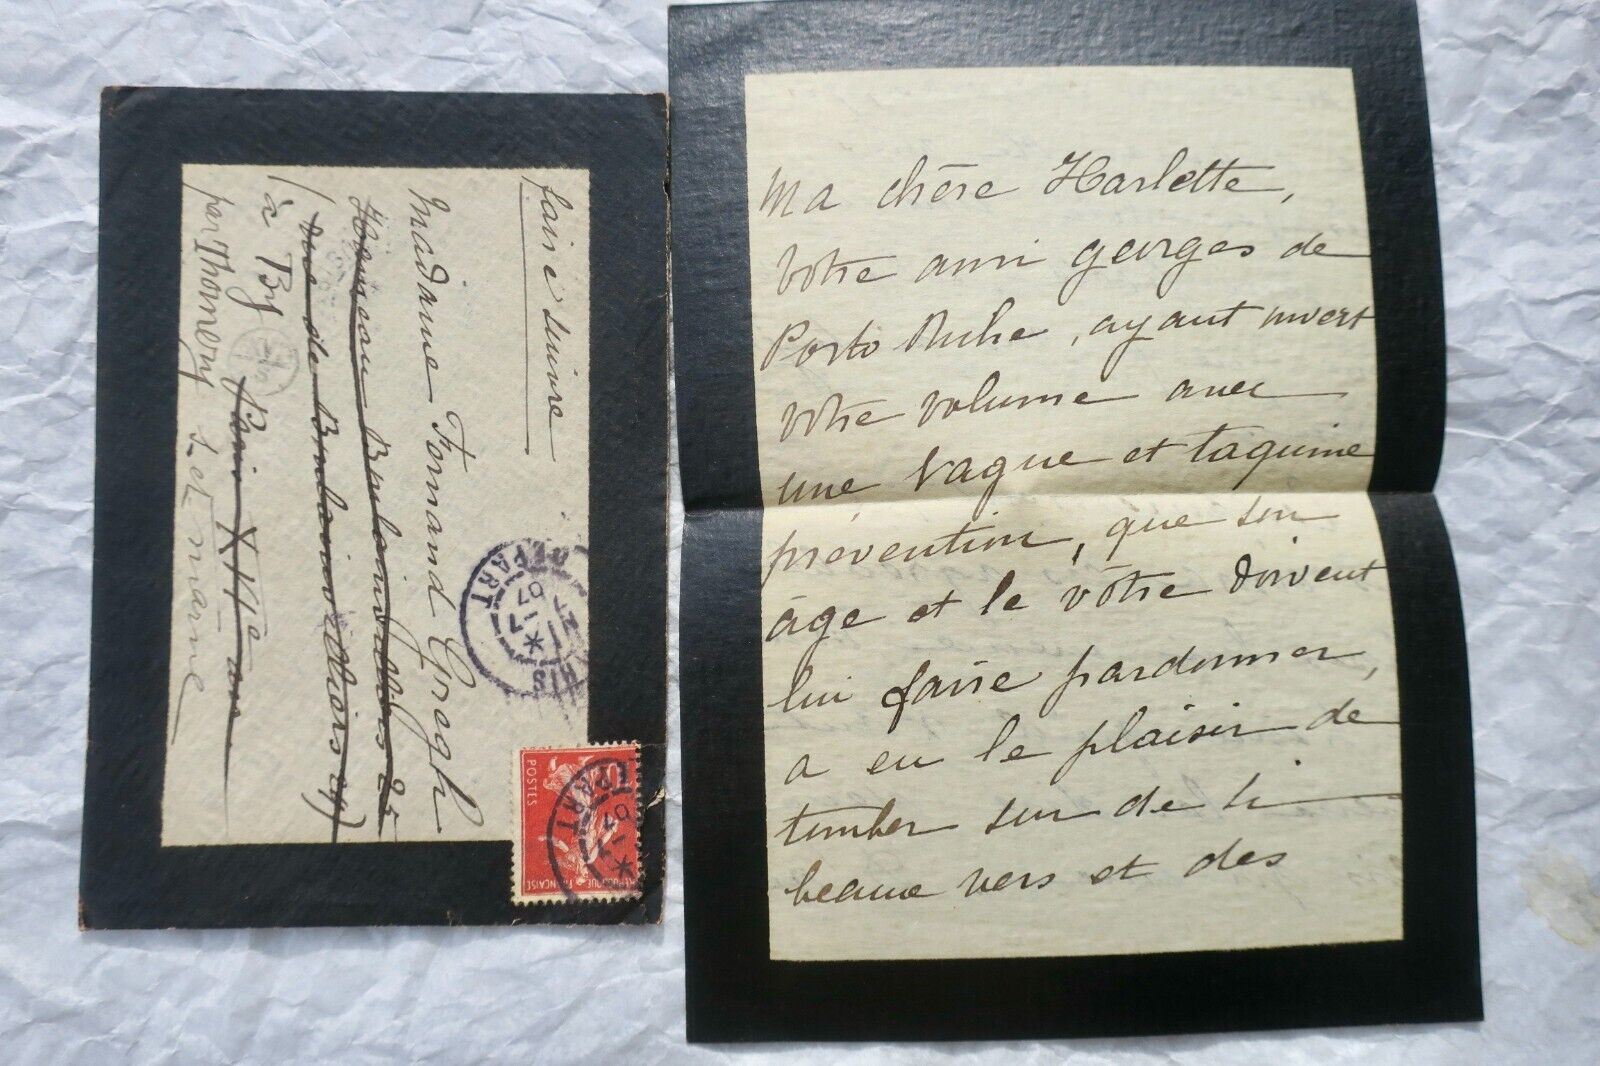 faire suivre
Madame Fernand Gregh
Hameau Boulainvilliers 25
(rue de Boulainvilliers 29)
à By Paris XVIe
par Thomery
S. et marne
PARIS
DEPART
7 07
POSTES
10
REPUBLIQUE FRANÇAISE
DEPART
07
Ma chère Harlette,
votre ami georges de
Porto Riche, ayant ouvert
votre volume avec
une vague et taquine
prévention, que son
âge et le vôtre doivent
lui faire pardonner,
a eu le plaisir de
tomber sur de si
beaux vers et des